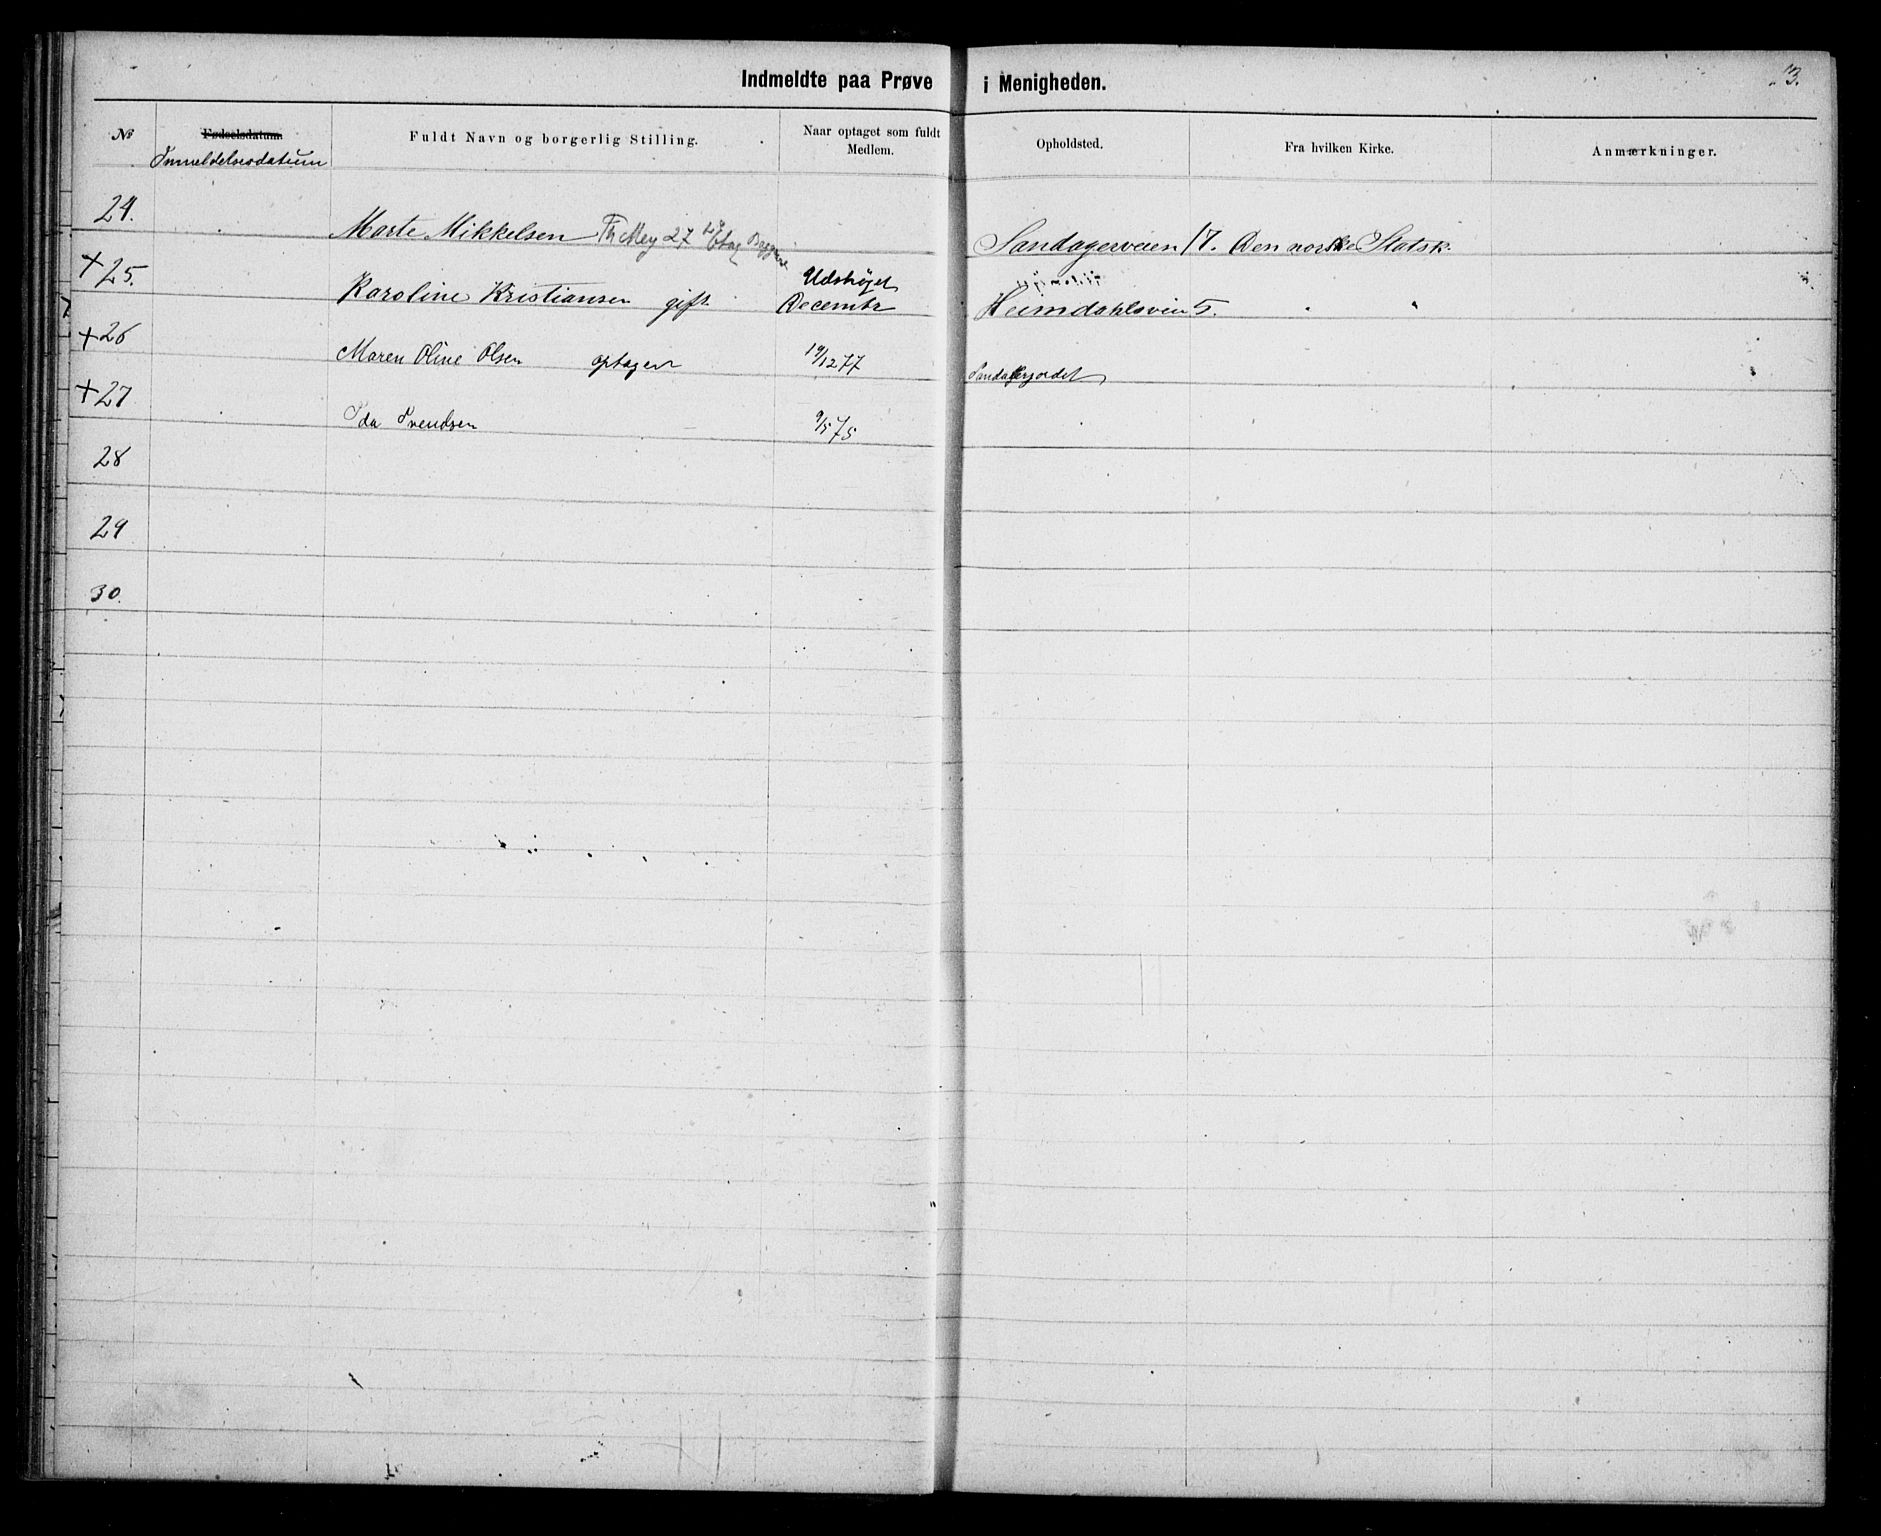 Indmeldte paa Prøve i Menigheden.
3.
№ Fødselsdatum. Fuldt Navn og borgerlig Stilling. Naar optaget som fuldt Medlem. Opholdsted. Fra hvilken Kirke. Anmærkninger.
Inmeldelsesdatum
24. Marte Mikkelsen 27 Etag Sandagerveien 17. Den norske Statsk.
+ 25. Karoline Kristiansen gift. Udstrøget Decembr Heimdahlsvein 5. " "
+ 26 Maren Oline Olsen optagen 19/12 77 Sandagerjordet
+ 27 Ida Svendsen 9/5 75
28
29
30.